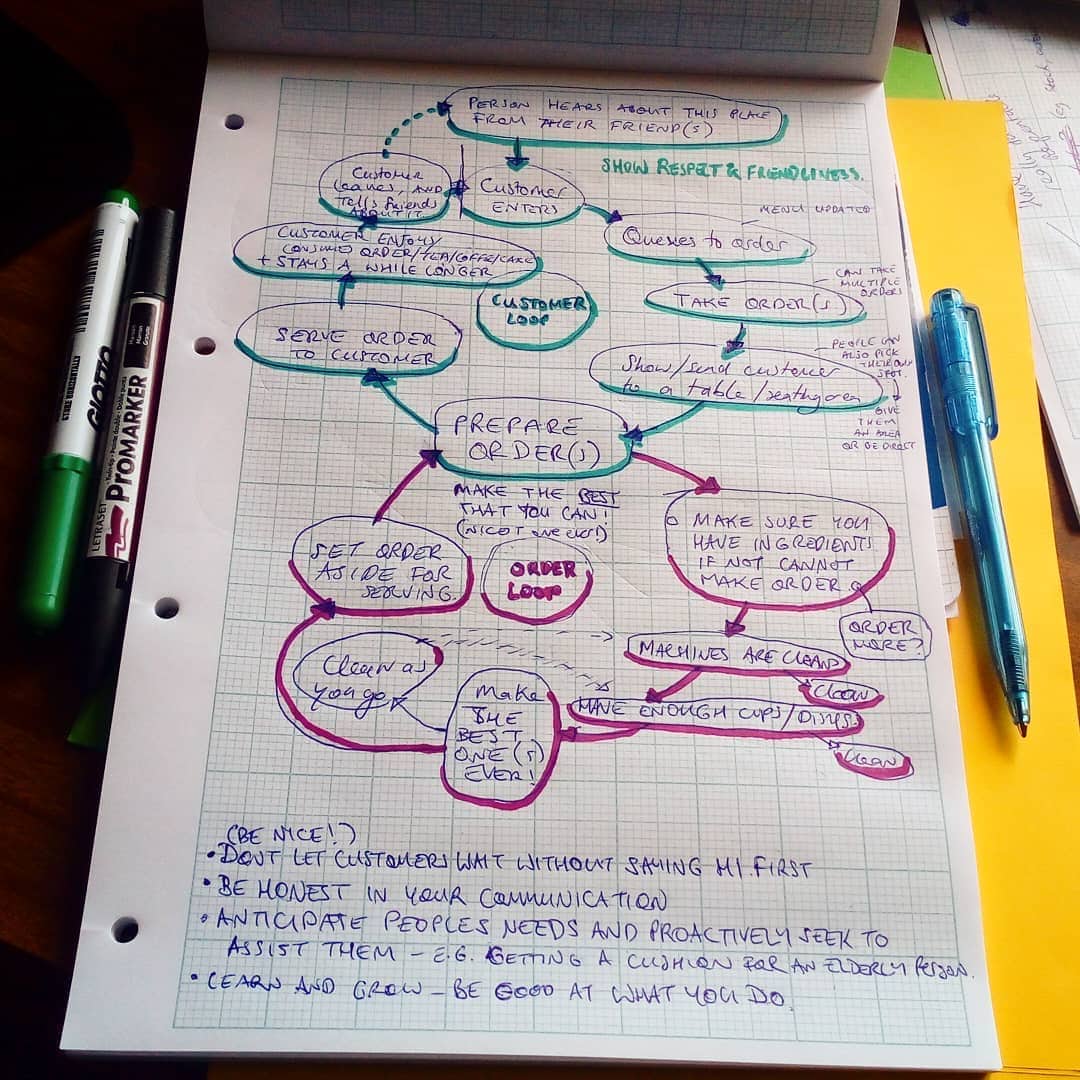 PERSON HEARS ABOUT THIS PLACE
FROM THEIR FRIEND(S)
SHOW RESPECT & FRIENDLINESS.
Customer
leaves, AND
tells friends
ABOUT IT
Customer
ENTERS
MENU UPDATED
Queues to order
CUSTOMER ENJOYS
(CONSUMES) ORDER/TEA/COFFE/CAKE
+ STAYS A WHILE LONGER
CAN TAKE
MULTIPLE
ORDERS
TAKE ORDER(S)
CUSTOMER
LOOP
SERVE ORDER
TO CUSTOMER
PEOPLE CAN
ALSO PICK
THEIR OWN
SPOT.
Show/send customer
to a table/seating area
GIVE
THEM
AN AREA
OR BE DIRECT
PREPARE
ORDER(S)
MAKE THE BEST
THAT YOU CAN!
(NICEST ONE EVER!)
MAKE SURE YOU
HAVE INGREDIENTS
IF NOT CANNOT
MAKE ORDER
SET ORDER
ASIDE FOR
SERVING.
ORDER
LOOP
ORDER
MORE?
MACHINES ARE CLEAN
Clean
Clean as
you go
Make
THE
BEST
ONE(S)
EVER!
HAVE ENOUGH CUPS/DISHES
Clean
(BE NICE!)
• DONT LET CUSTOMERS WAIT WITHOUT SAYING HI FIRST
• BE HONEST IN YOUR COMMUNICATION
• ANTICIPATE PEOPLES NEEDS AND PROACTIVELY SEEK TO
ASSIST THEM – E.G. GETTING A CUSHION FOR AN ELDERLY PERSON.
• LEARN AND GROW – BE GOOD AT WHAT YOU DO.
GIOTTO
STORE HORIZONTALLY
LETRASET PROMARKER